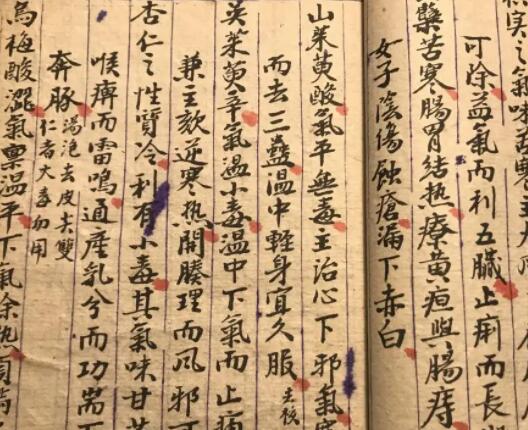 实之气味苦寒
可除益氣而利五臓止痢而長
蘗苦寒腸胃結热療黄疸與腸痔
女子陰傷蝕瘡漏下赤白
山茱萸酸氣平無毒主治心下邪氣寒
而去三蟲温中軽身宜久服 去核
吴茱萸辛氣温小毒温中下氣而止痛
兼主欬逆寒热開腠理而风邪可
杏仁之性質冷利有小毒其氣味甘苦
喉痹而雷鳴通産乳兮而功耑下
奔豚 湯泡去皮尖雙
仁者大毒勿用
烏梅酸澀氣禀温平下氣除热煩